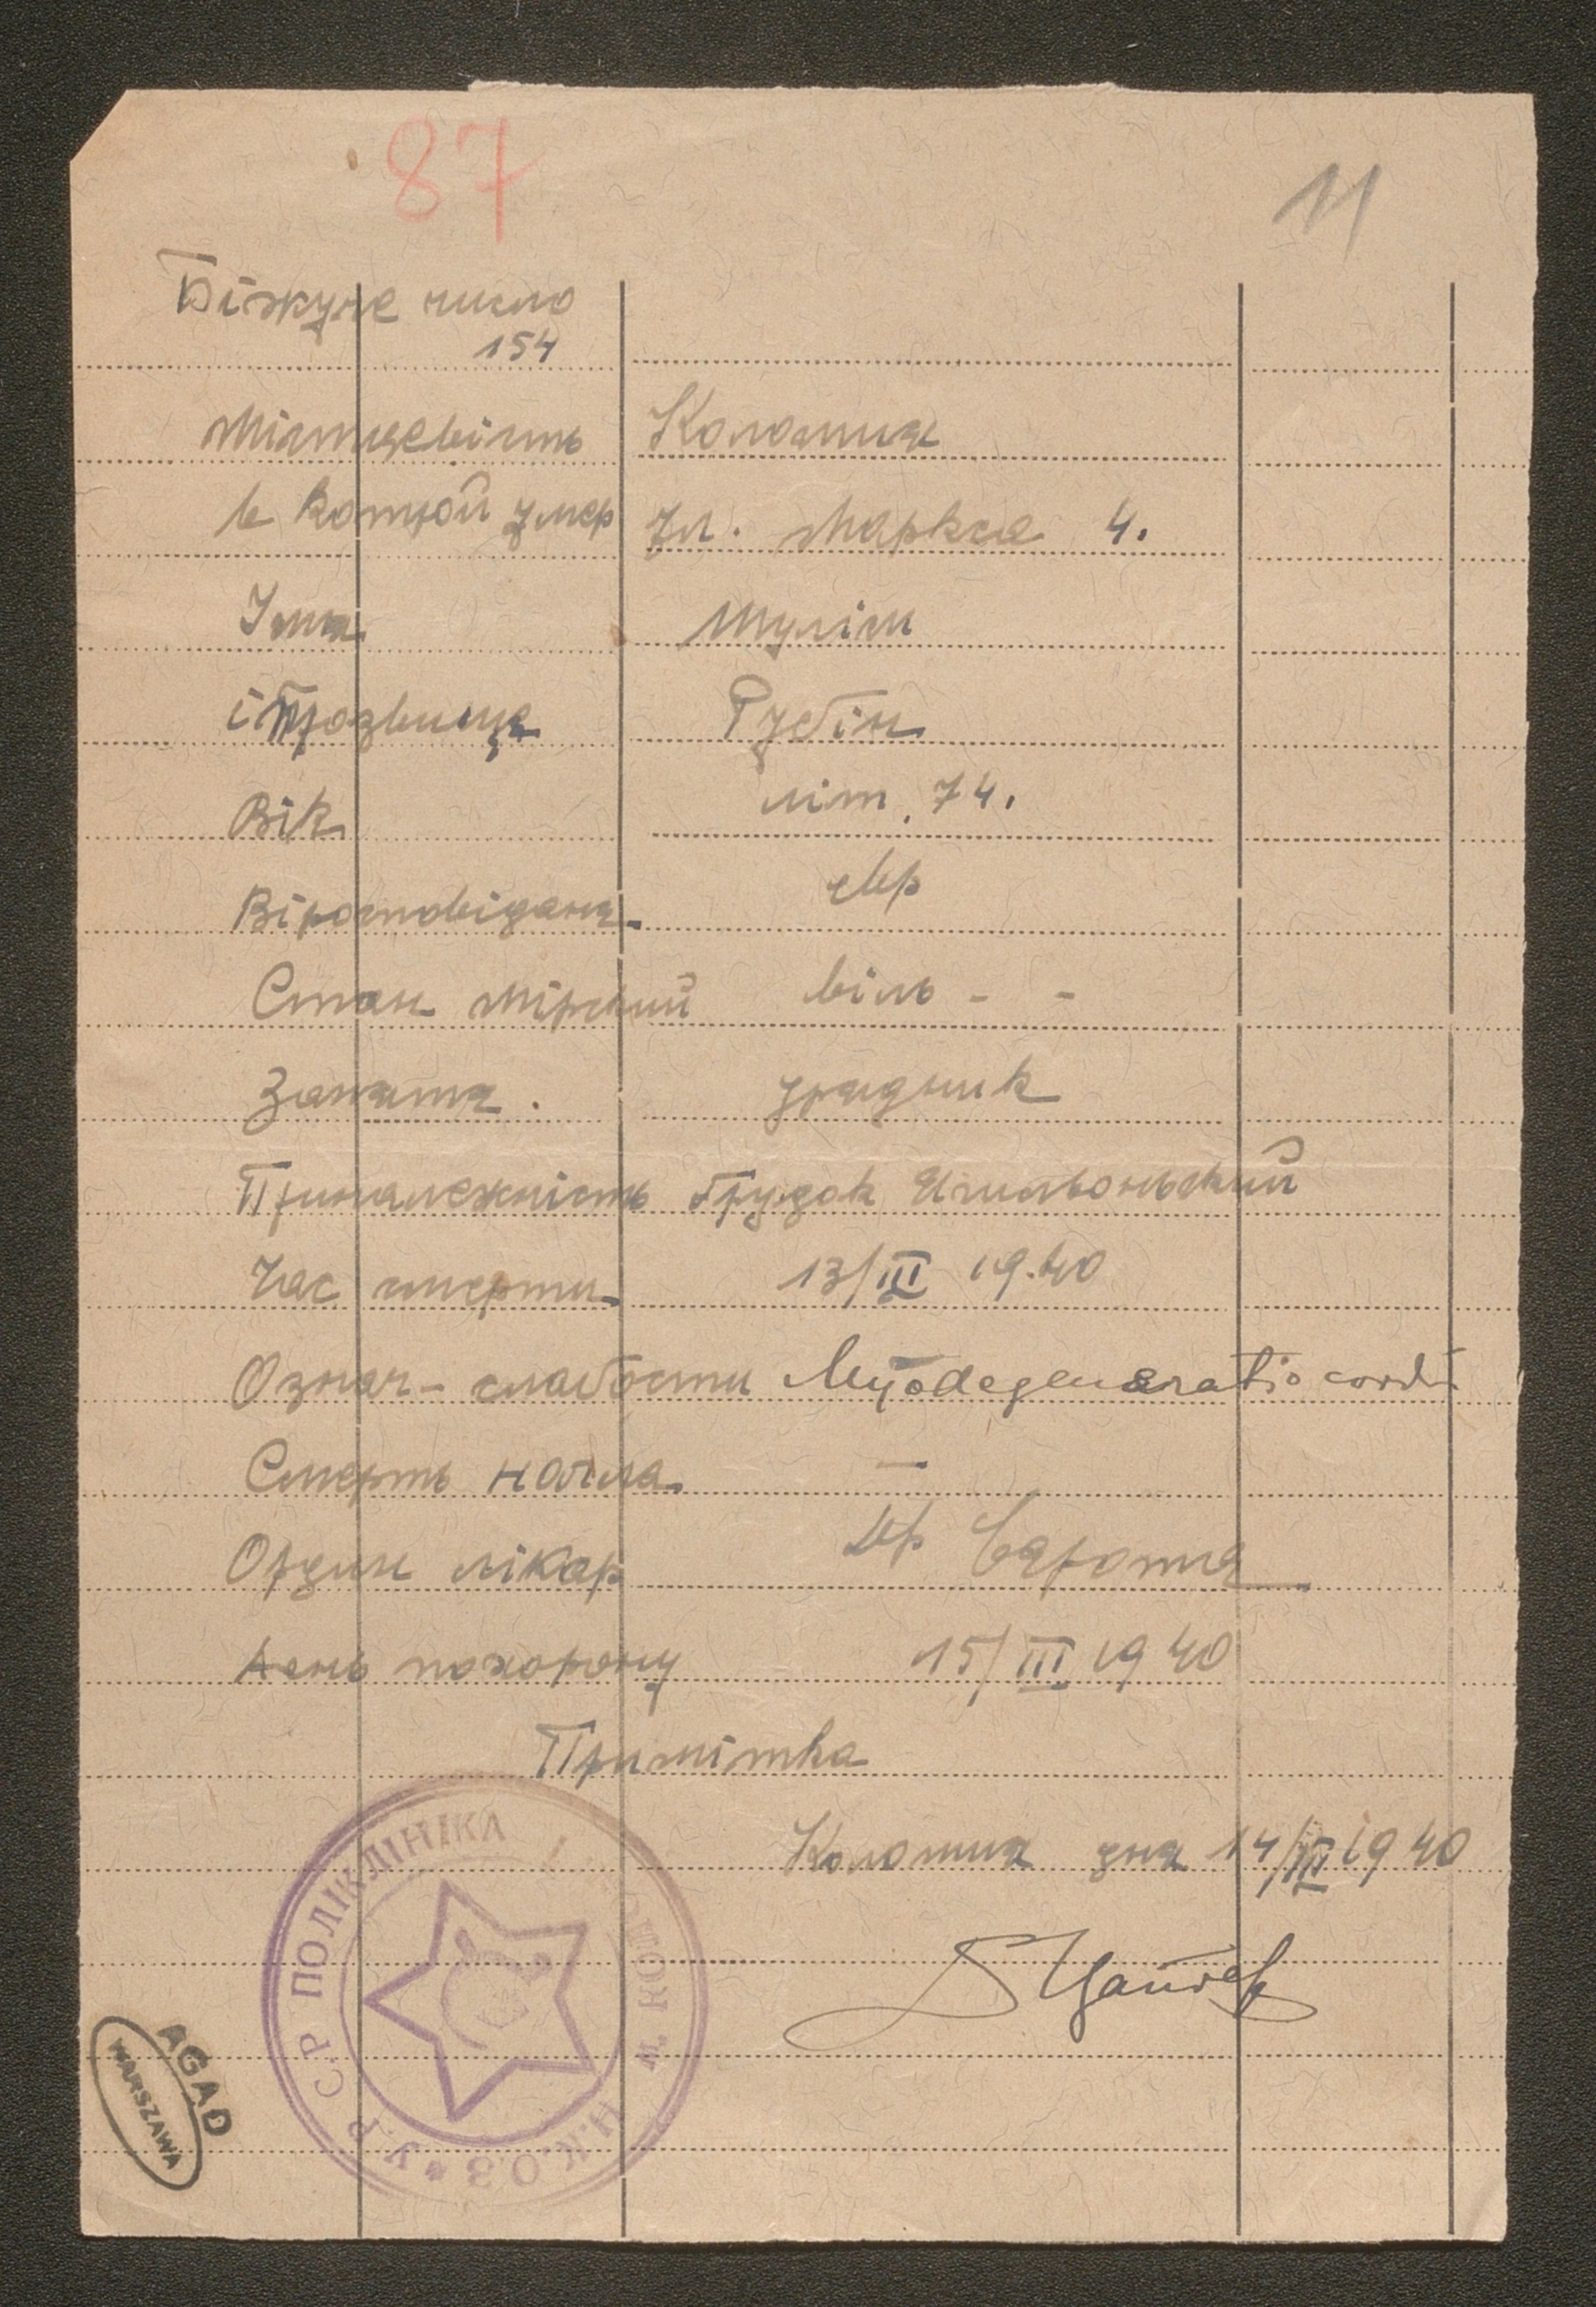 87
11
Біжуче число
154
Місцевість Коломия
в котрой умер Ул. Маркса 4.
Імя Шулім
і Прозвище Рубін
Вік літ. 74.
Віросповідання
Стан мірский віль - -
Заняття. урядник
Приналежність Грудок Ягильоньский
Час смерти 13/III 19.40
Означ- слабости Myodegeneratio cordis
Смерть нагла —
Ордин лікар Др
День похорону 15/III 1940
Примітка
Коломия дня 14/III 1940
У.Р.С.Р ПОЛІКЛІНІКА
м. КОЛОМ
Н.К.О.З
AGAD
WARSZAWA